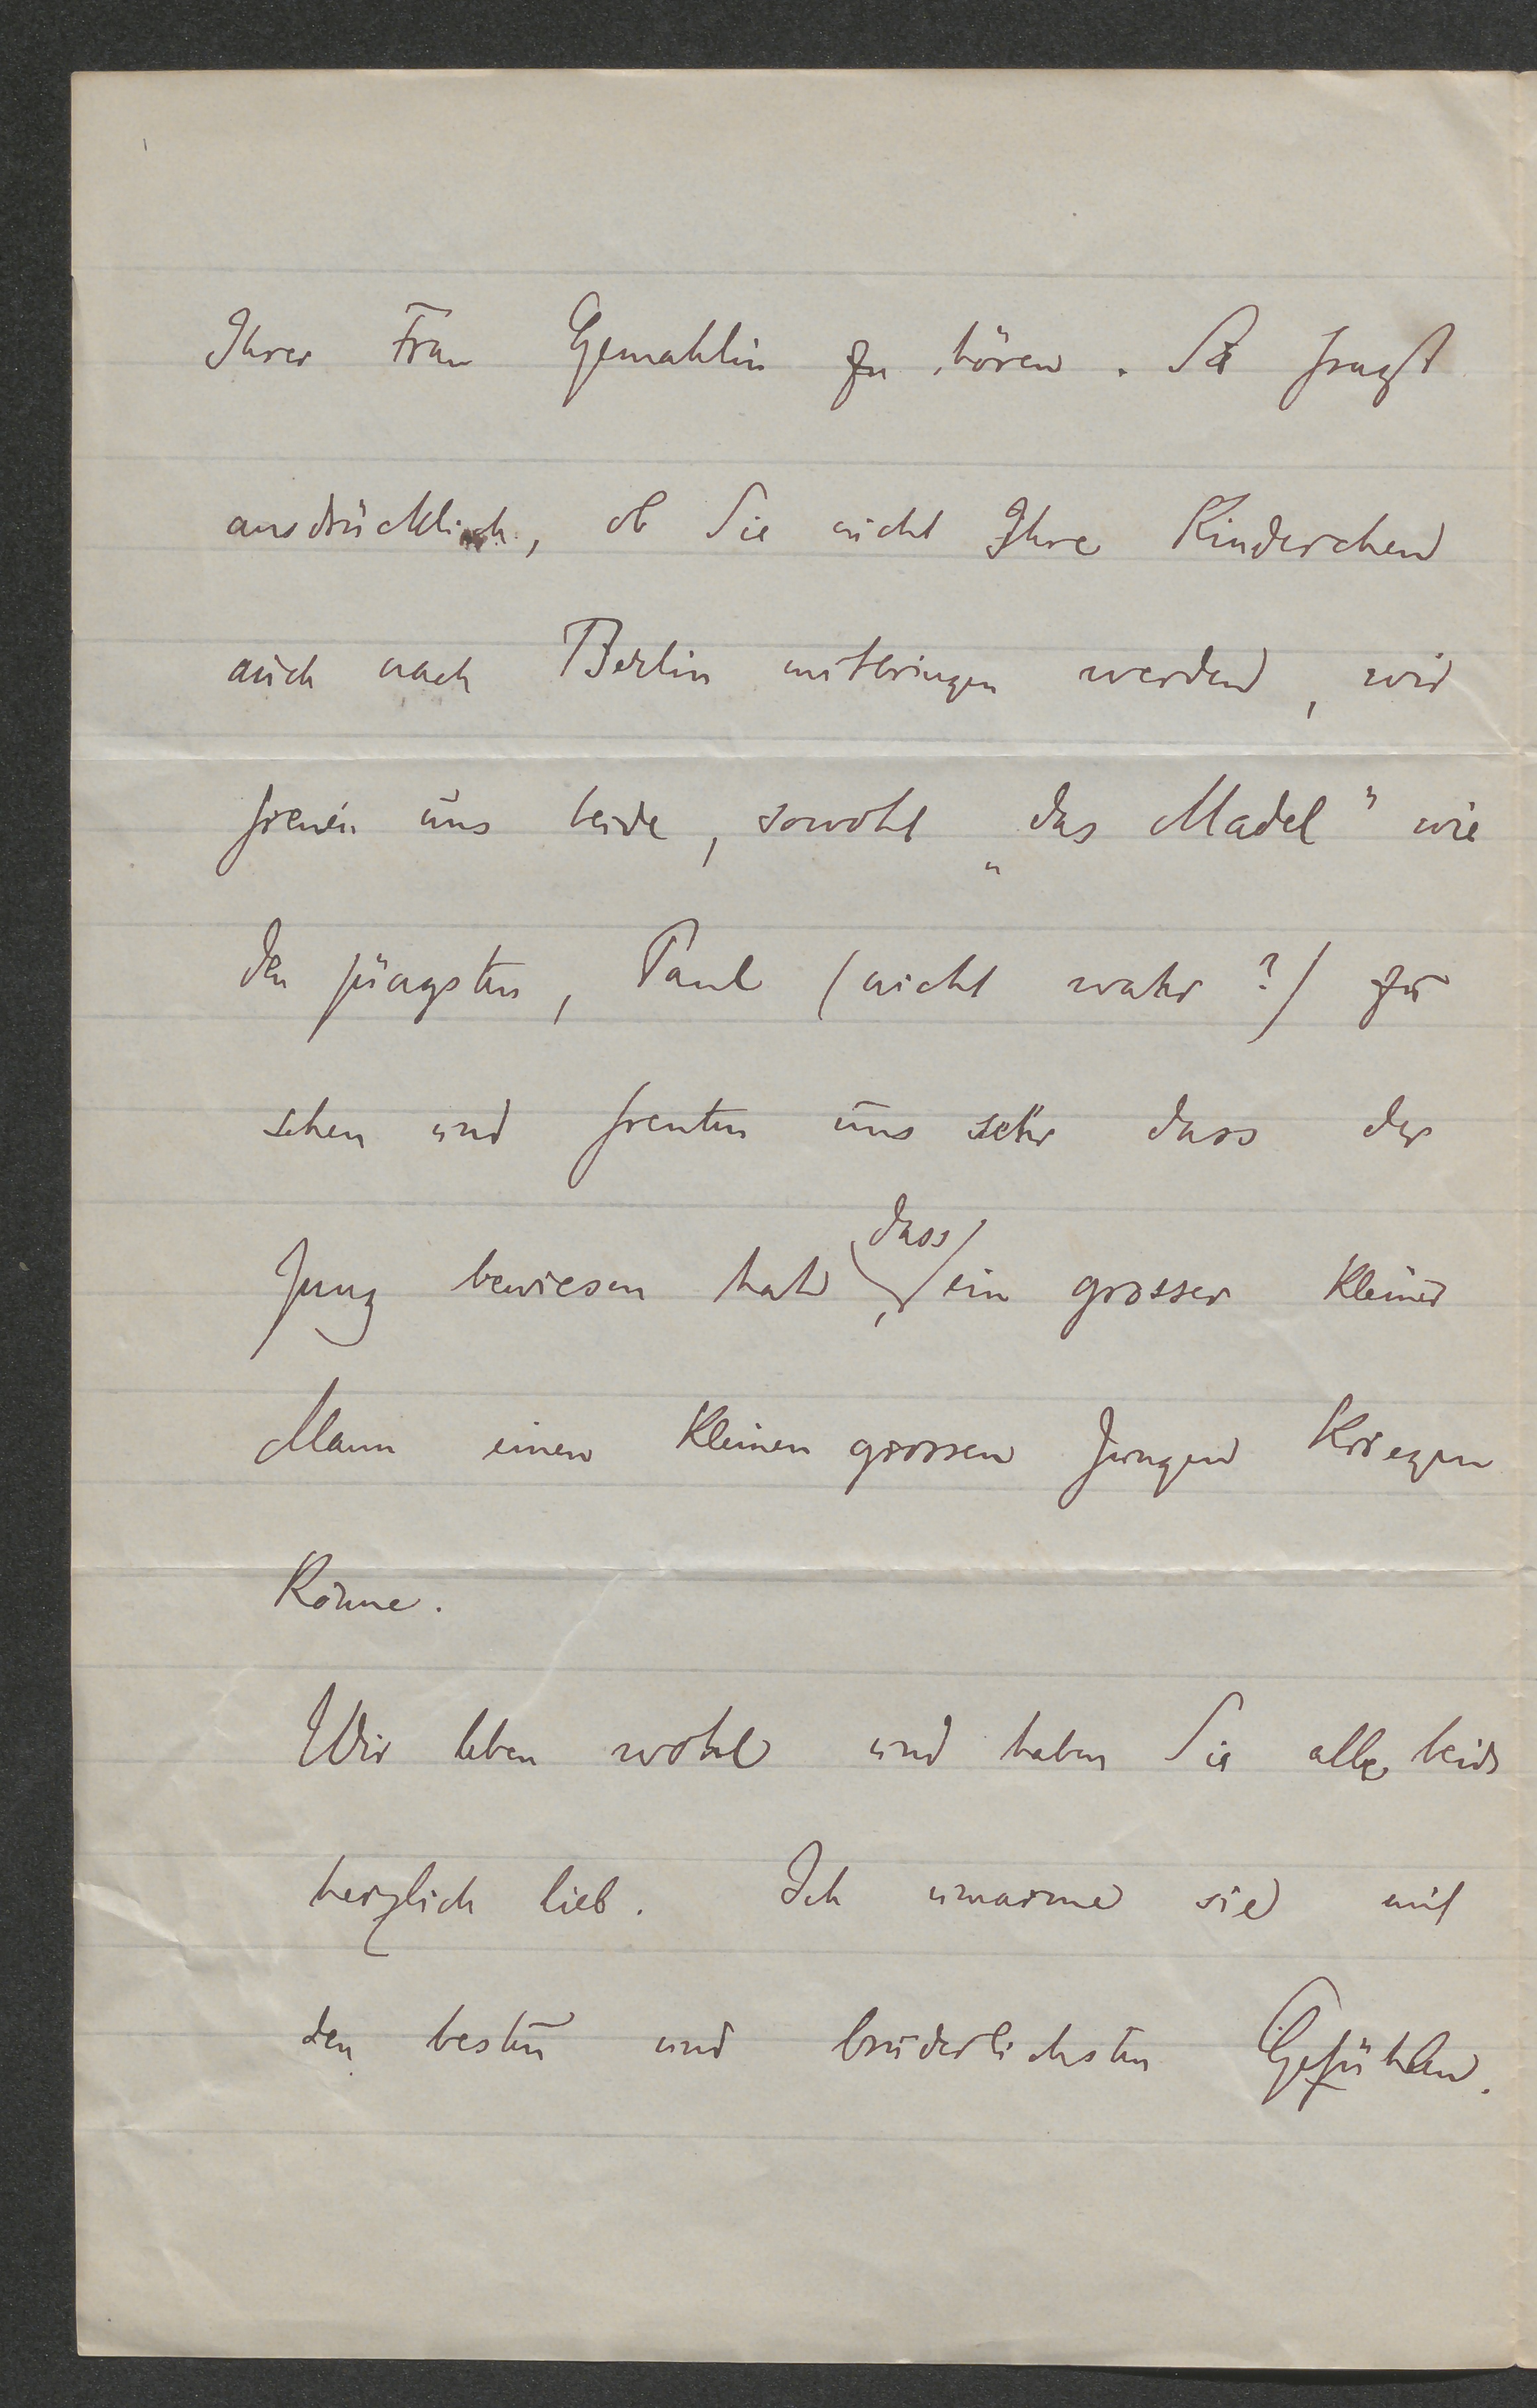 Ihrer Frau Gemahlin zu hören. Sie fragt
ausdrücklich, ob Sie nicht Ihre Kinderchen
auch nach Berlin mitbringen werden, wir
freuen uns beide, sowohl „das Madel" wie
den jüngsten, Paul (nicht wahr?) zu
sehen und freuten uns sehr dass der
Jung bewiesen hat, dass ein grosser kleiner
Mann einen kleinen grossen Jungen kriegen
könne.
Wir leben wohl und haben Sie alle beide
herzlich lieb. Ich umarme sie mit
den besten und brüderlichsten Gefühlen.